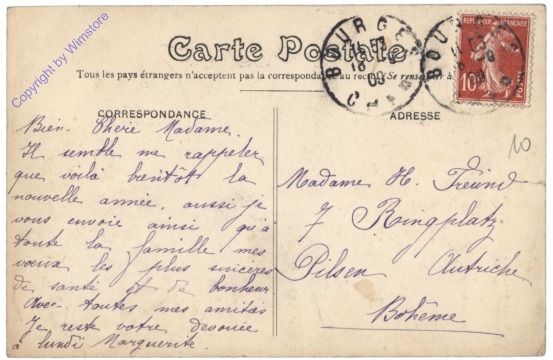 Copyright by Wimstore
Carte Postale
Tous les pays étrangers n'acceptent pas la correspondance au recto (Se renseigner à
CORRESPONDANCE
Bien Chère Madame.
Il semble me rappeler
que voilà bientôt la
nouvelle année, aussi je
vous envoie ainsi qu'à
toute la famille mes
vœux les plus sincères
de santé et de bonheur
Avec toutes mes amitiés
Je reste votre dévouée
à lundi Marguerite.
BOURGES
CHER
BOURGES
REPUBLIQUE FRANÇAISE
10
POSTES
ADRESSE
10
Madame H. Freund
7 Ringplatz
Pilsen Autriche
Bohême